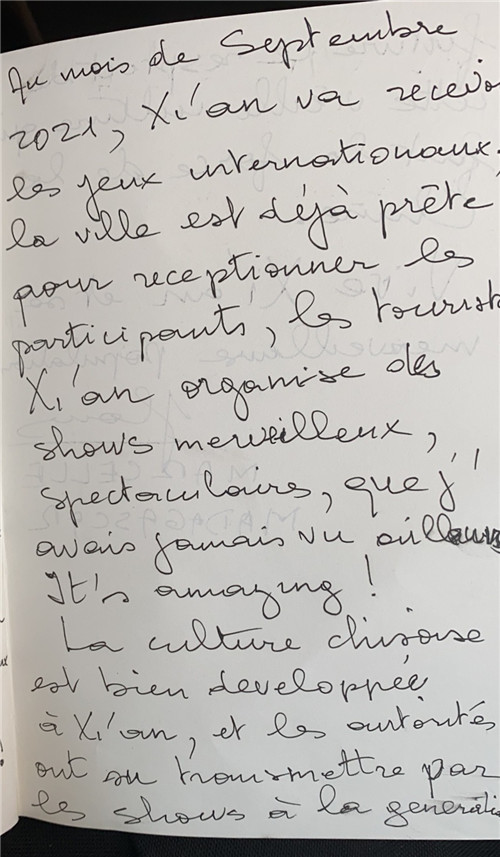 Au mois de Septembre
2021, Xi'an va recevoi
les jeux internationaux.
la ville est déjà prête
pour receptionner les
participants, les tourist
Xi'an organise des
shows merveilleux,
spectaculaires, que j'
avais jamais vu ailleurs
It's amazing !
La culture chinoise
est bien developpée
à Xi'an, et les autorités
ont su transmettre par
les shows à la generatio